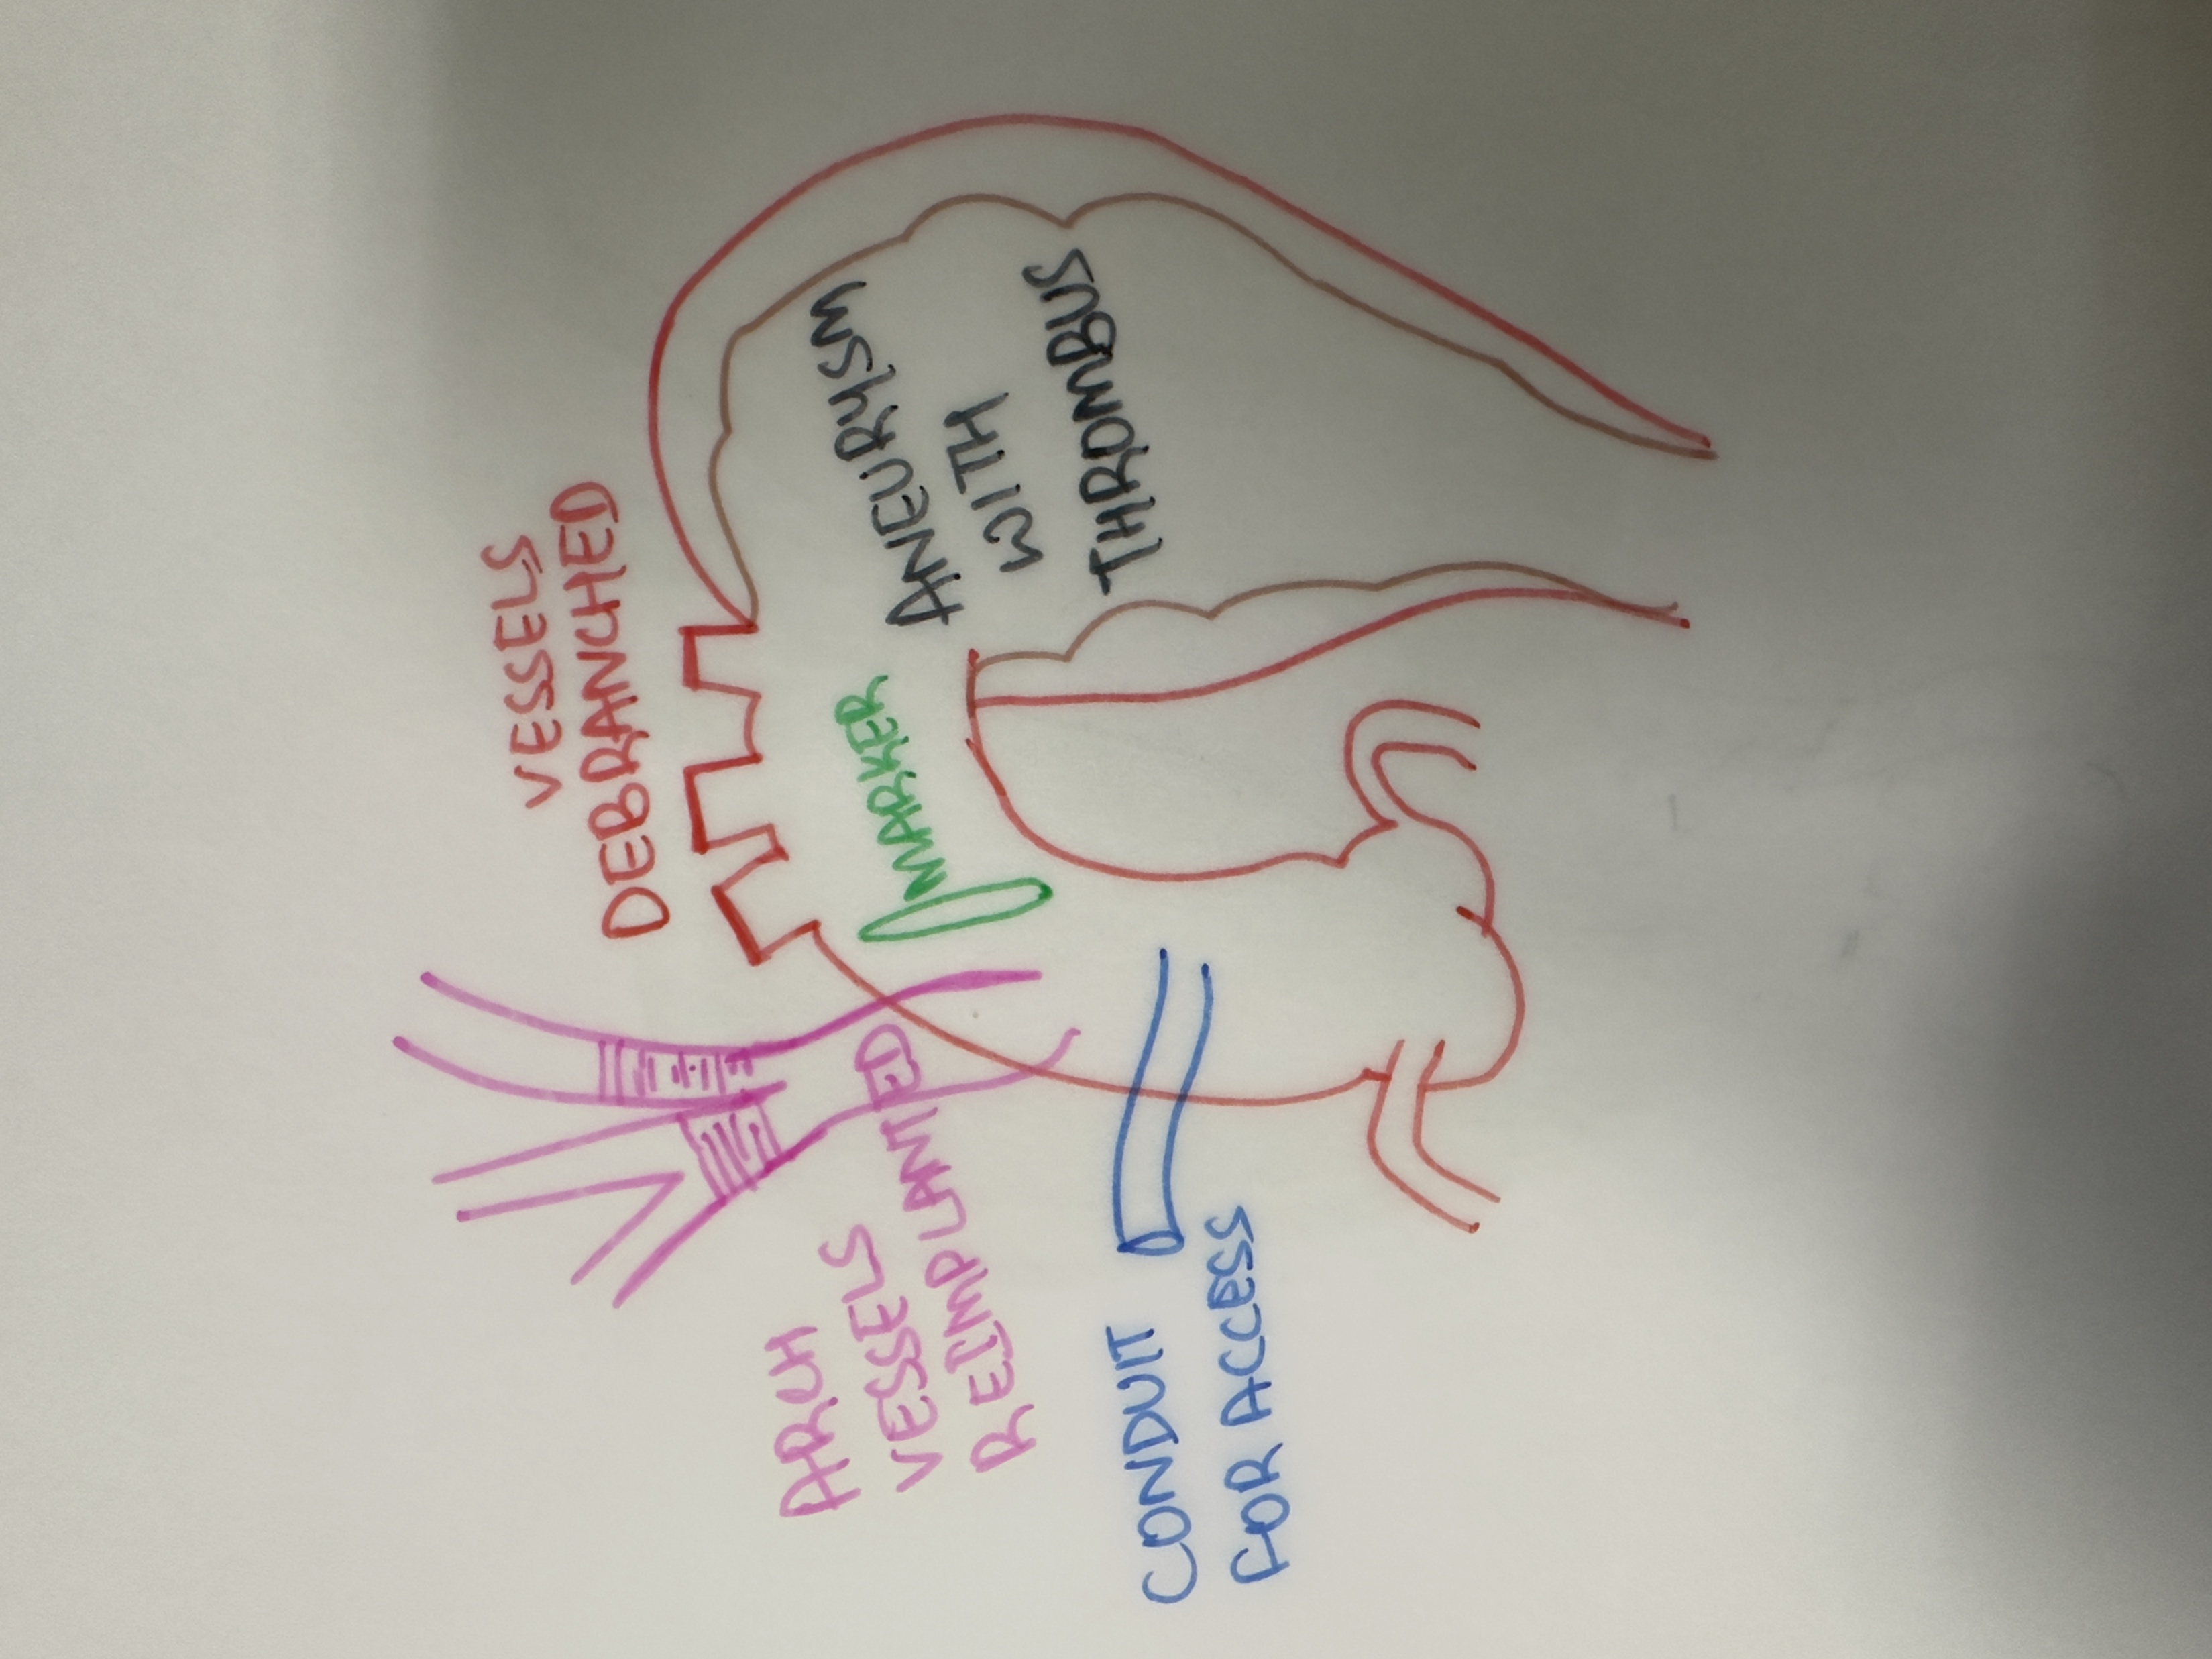 DEBRANCHED
VESSELS
ANEURYSM
WITH
THROMBUS
MARKER
ARCH
VESSELS
REIMPLANTED
CONDUIT
FOR ACCESS